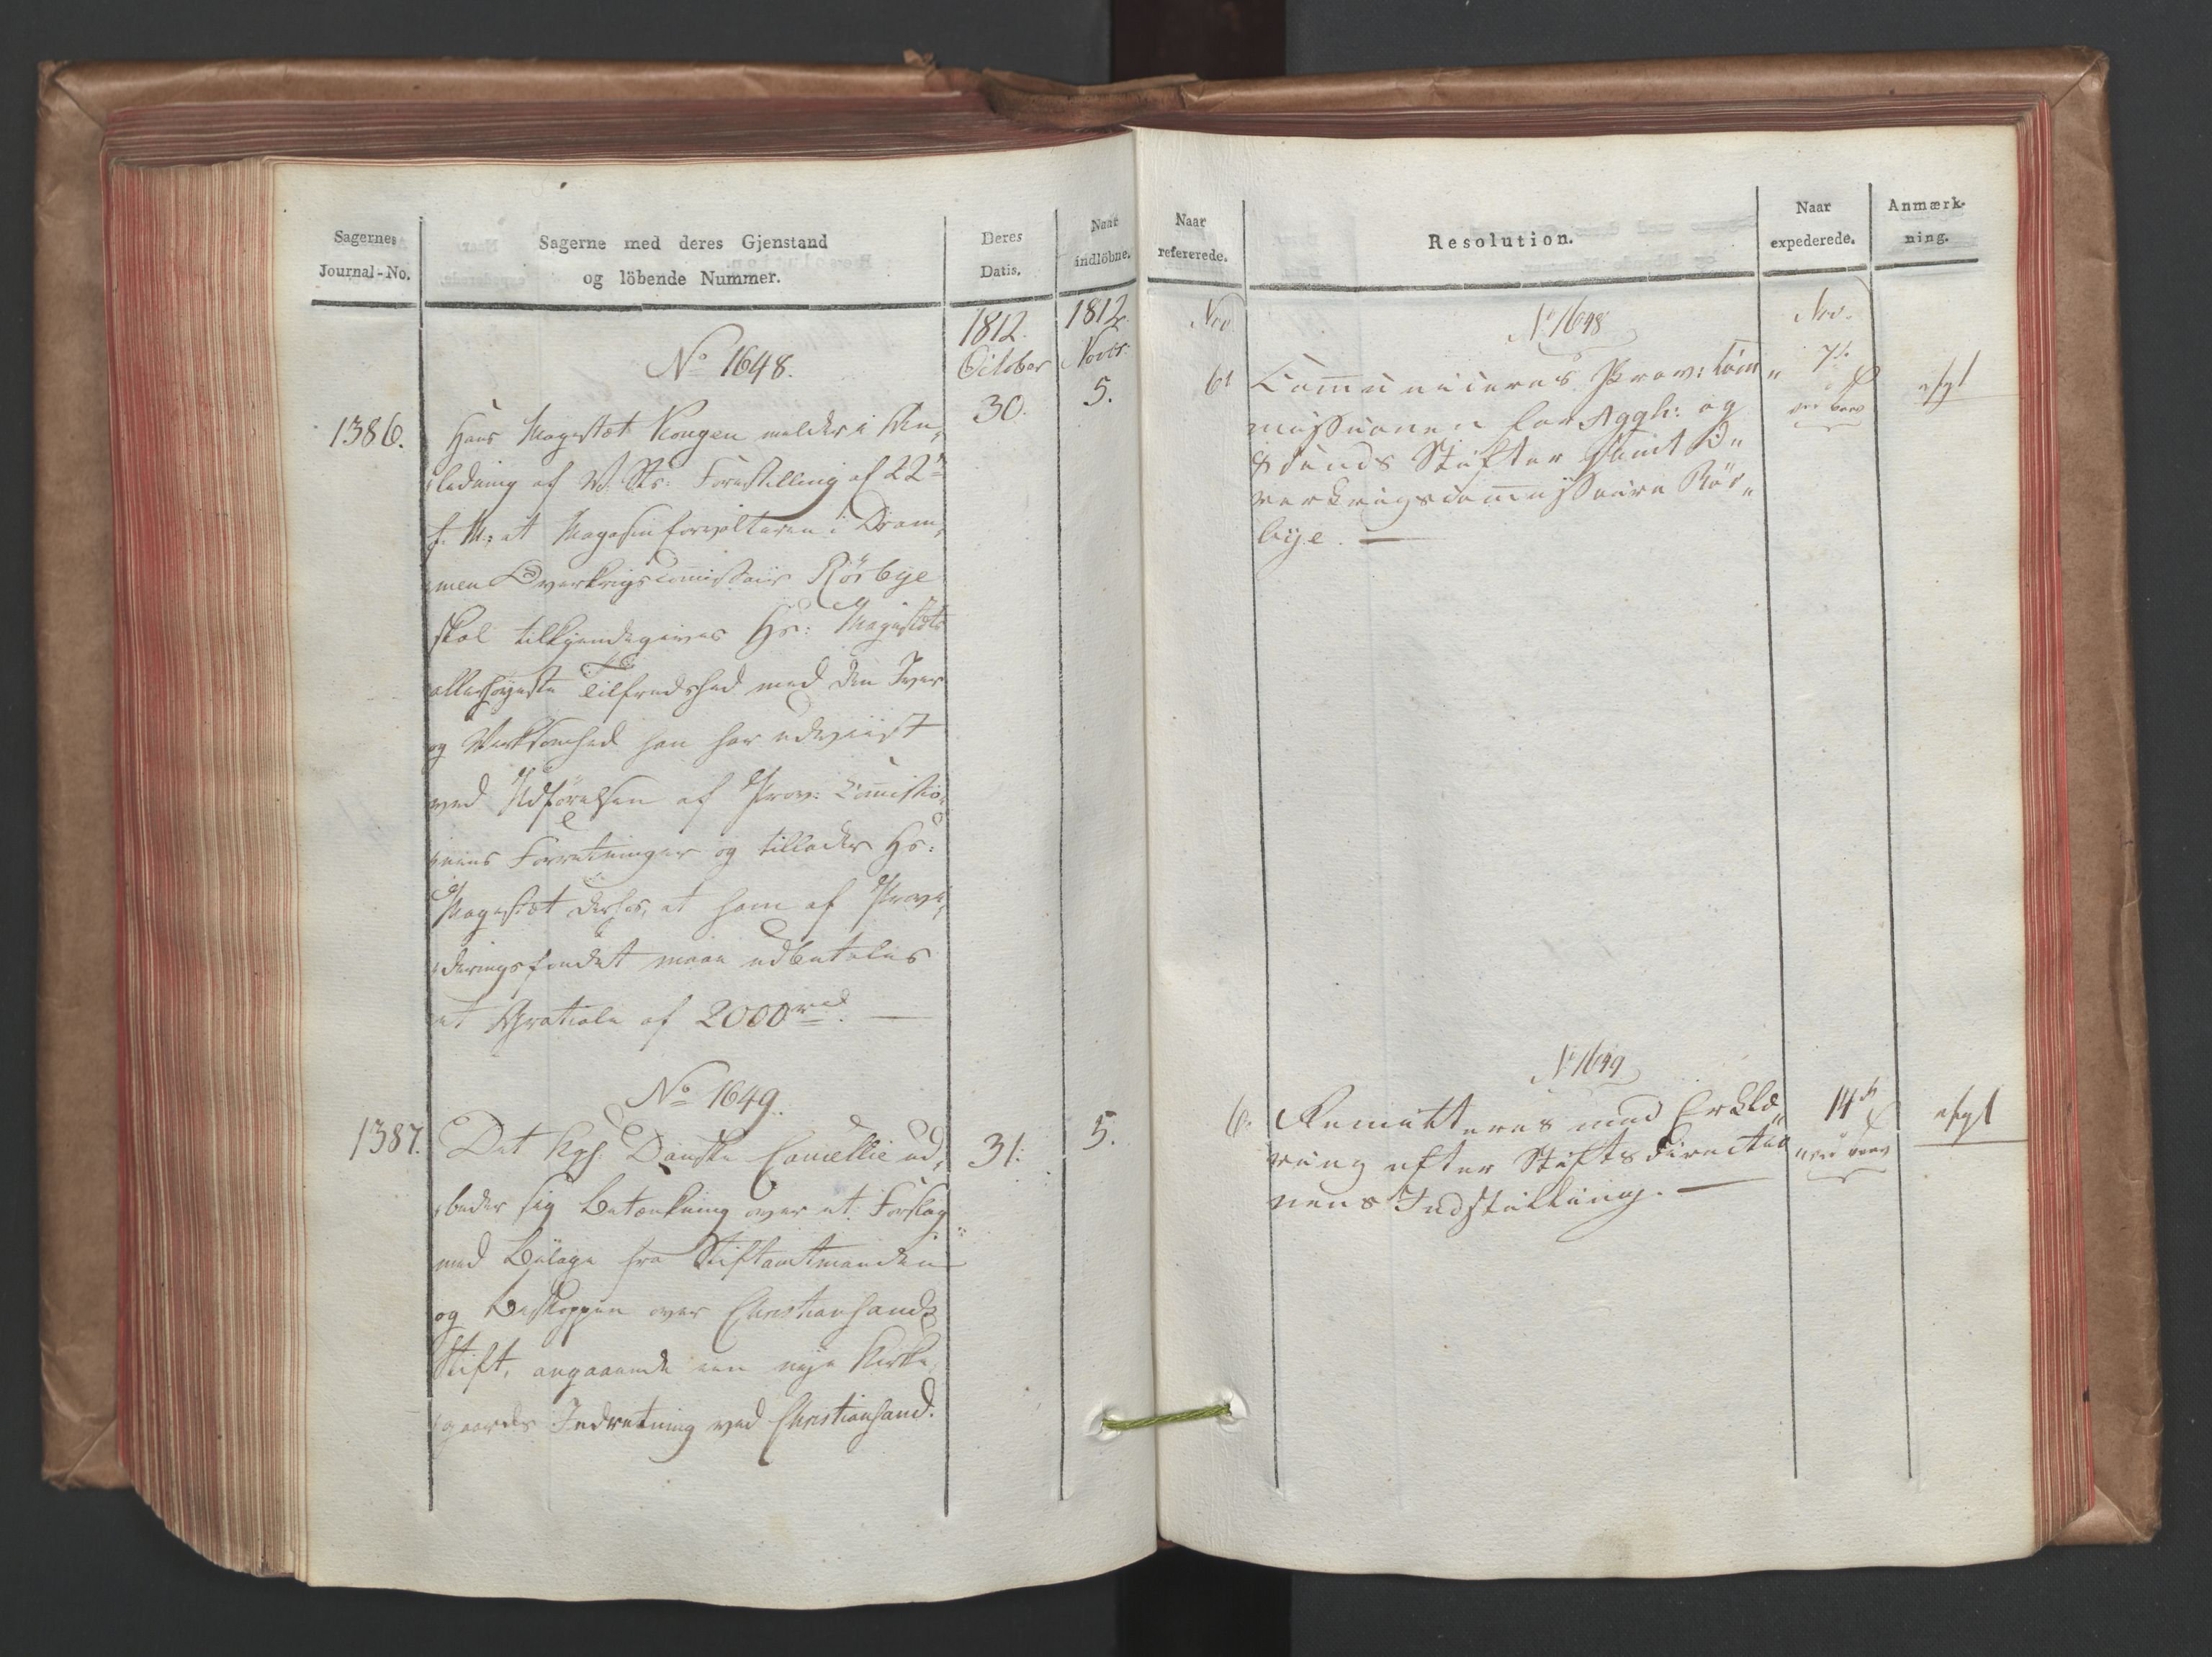 Sagernes
Journal-No.
Sagerne med deres Gjenstand
og löbende Nummer.
Deres
Datis.
Naar
indlöbne.
1812.
October
30.
1812.
Novbr:
5.
No 1648.
1386.
Hans Majestæt Kongen melder i An„
„ledning af V. Sts: Forestilling af 22de
f. M: at Magasinforvalteren i Dram„
„men Overkrigscommissair Rörbye
skal tilkjendegives Hs: Majestæts
allerhøyeste Tilfredshed med den Iver
og Virksomhed han har udviist
ved Udförelsen af Prov: Commissio„
„nens Forretninger og tillader Hs:
Majestæt derhos, at ham af Provi„
„deringsfondet maae udbetales
et Gratiale af 2000 rd. —
No 1649.
1387.
Det Kgl. Danske Cancellie ud„
„beder sig Betænkning over et Forslag
med Bilage fra Stiftamtmanden
og Biskoppen over Christiansands
Stift, angaaende een nye Kirke„
„gaards Indretning ved Christiansand.
31.
5.
Naar
refererede.
Resolution.
Naar
expederede.
Anmærk-
ning.
Nov.
No 1648
Nov.
6t
Communiceres Prov: Com„
missionen for Aggh: og
Stifter samt O„
verkrigscommissaire Rör„
bye. —
7de
afgt
No 1649
6.
Remitteres med Erklæ„
ring efter Stiftsdirectio
nens Indstilling. —
14de
afgt